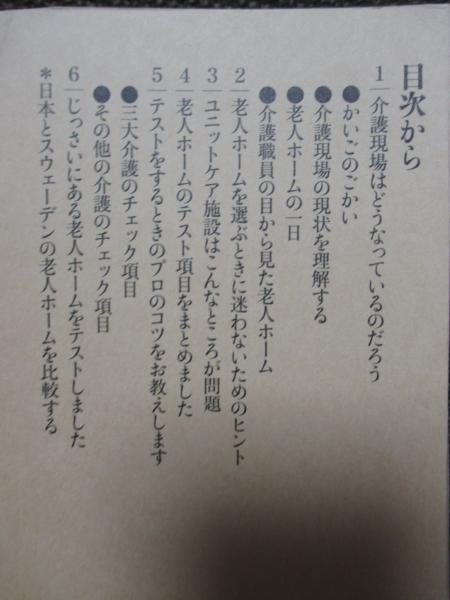 目次から
1 介護現場はどうなっているのだろう
●かいごのごかい
●介護現場の現状を理解する
●老人ホームの一日
●介護職員の目から見た老人ホーム
2 老人ホームを選ぶときに迷わないためのヒント
3 ユニットケア施設はこんなところが問題
4 老人ホームのテスト項目をまとめました
5 テストをするときのプロのコツをお教えします
●三大介護のチェック項目
●その他の介護のチェック項目
6 じっさいにある老人ホームをテストしました
*日本とスウェーデンの老人ホームを比較する